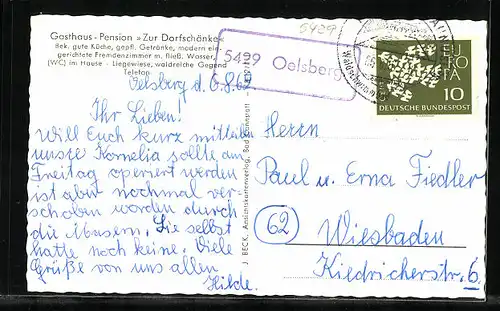 5429
Gasthaus - Pension »Zur Dorfschänke«
Bek. gute Küche, gepfl. Getränke, modern ein-
gerichtete Fremdenzimmer m. fließ. Wasser,
(WC) im Hause - Liegewiese, waldreiche Gegend
Telefon
5429 Oelsberg
EUROPA
10
DEUTSCHE BUNDESPOST
Oelsberg d. 6.8.62
Ihr Lieben!
Will Euch kurz mitteilen
unsre Kornelia sollte am
Freitag operiert werden
ist aber nochmal ver-
schoben worden durch
die Masern. Sie selbst
hatte noch keine. Viele
Grüße von uns allen
Hilde.
J. BECK, Ansichtskartenverlag, Bad Cannstatt
Herrn
Paul u. Erna Fiedler
(62) Wiesbaden
Kiedricherstr. 6